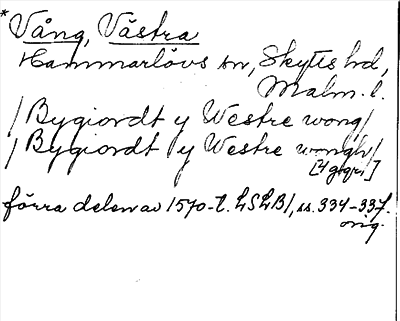 * Vång, Västra
Hammarlövs sn, Skytts hd,
Malm. l.
/ Bygiordt y Westre wong /
/ Bygiordt y Westre wongh /
[4 ggr]
förra delen av 1570-t. LSLB1, ss. 334-337.
orig.